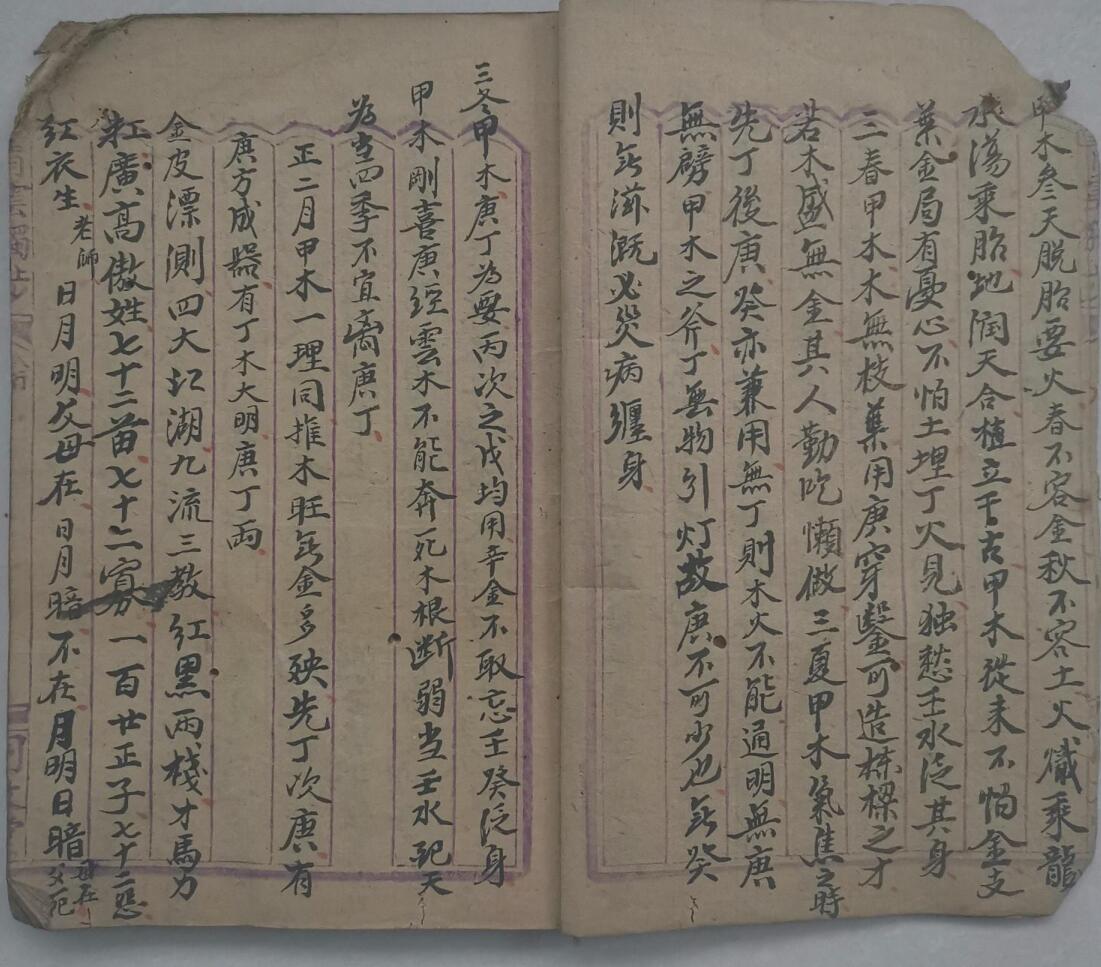 甲木叁天脱胎要火春不容金秋不容土火熾乘龍
水蕩乘胎地润天合植立千古甲木從未不怕金支
葉金局有憂心不怕土埋丁火見独愁壬水泛其身
三春甲木木無枝葉用庚穿鑿可造栋樑之才
若木盛無金其人勤吃懶做三夏甲木氣焦之時
先丁後庚癸亦兼用無丁則木火不能通明無庚
無劈甲木之斧丁無物引灯故庚不可少也無癸
則無滋溉必災病纒身
三冬甲木庚丁為要丙次之戊均用辛金不取忌壬癸泛身
甲木剛喜庚經雲木不能奔死木根断弱当壬水記天
為吉四季不宜离庚丁
正二月甲木一理同推木旺無金多殃先丁次庚有
庚方成器有丁木大明庚丁両
金皮漂測四大江湖九流三教紅黒両棧才馬力
紅廣高傲姓七十二苗七十二寡一百廿正子七十二惡
红衣生老師 日月明父母在日月暗不在月明日暗母在父死